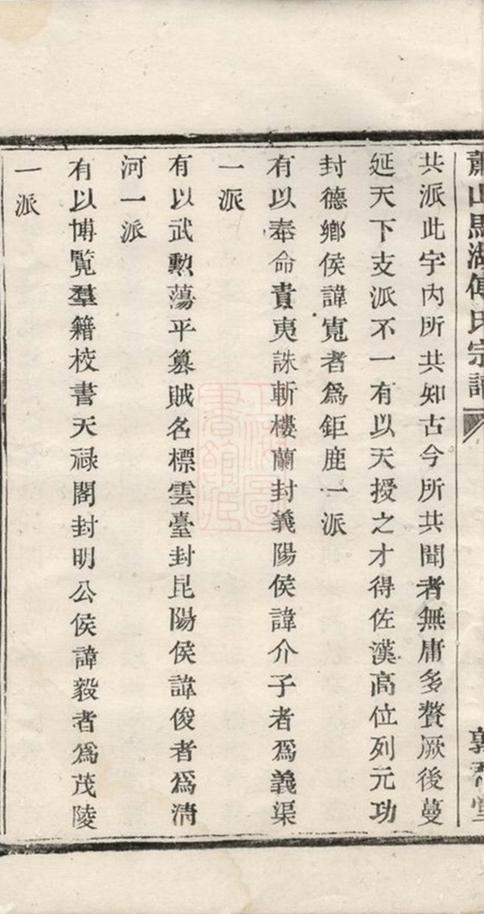 蕭山馬湖傅氏宗譜
共派此宇內所共知古今所共聞者無庸多贅厥後蔓
延天下支派不一有以天授之才得佐漢高位列元功
封德鄉侯諱寬者爲鉅鹿一派
有以奉命責夷誅斬樓蘭封義陽侯諱介子者爲義渠
一派
有以武勲蕩平篡賊名標雲臺封昆陽侯諱俊者爲清
河一派
有以博覽羣籍校書天祿閣封明公侯諱毅者爲茂陵
一派